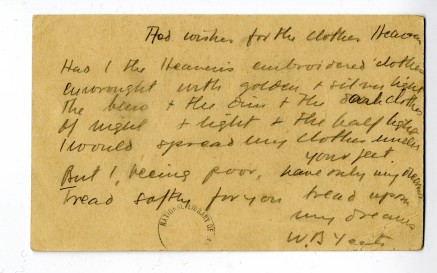 Aed wishes for the Clothes Heaven
Had I the Heavens embroidered clothes
Enwrought with golden & silver light
The blue & the dim & the dark clothes
Of night & light & the half light
I would spread my clothes under
your feet
But I, being poor, have only my dreams
Tread softly for you tread upon
my dreams
W.B Yeats
NATIONAL LIBRARY OF